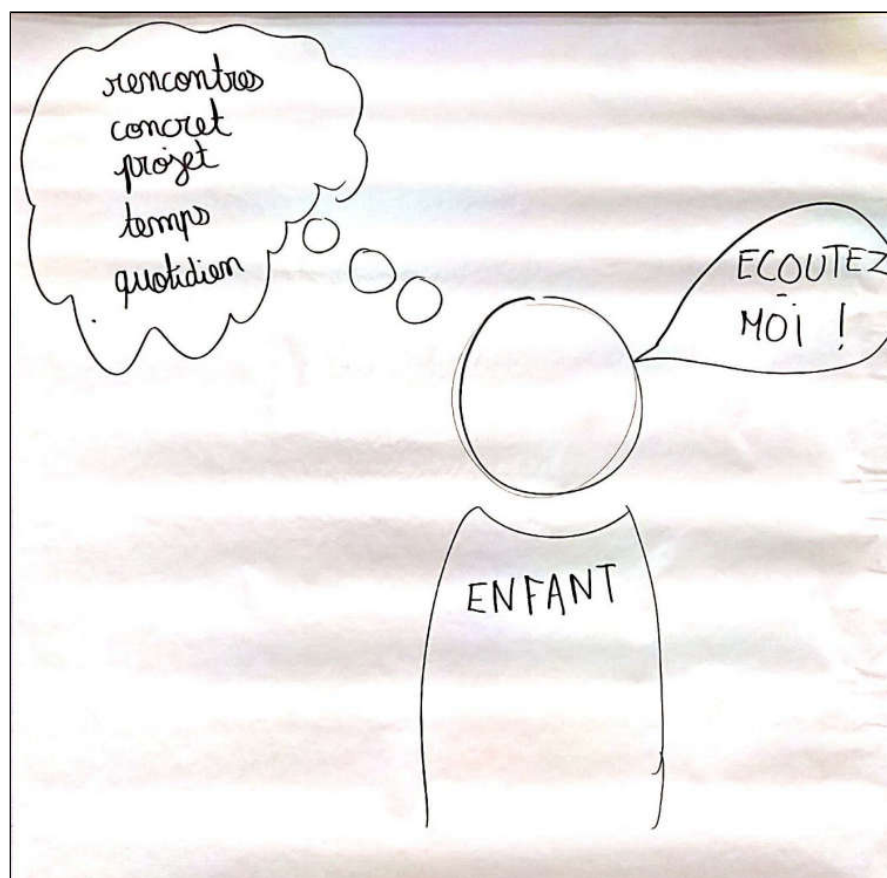 rencontres
concret
projet
temps
quotidien
ECOUTEZ
MOI !
ENFANT